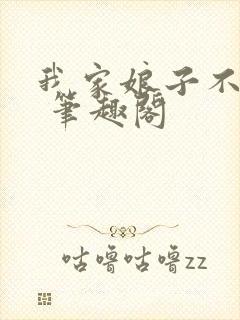 我家娘子不
筆趣閣
咕噜咕噜zz